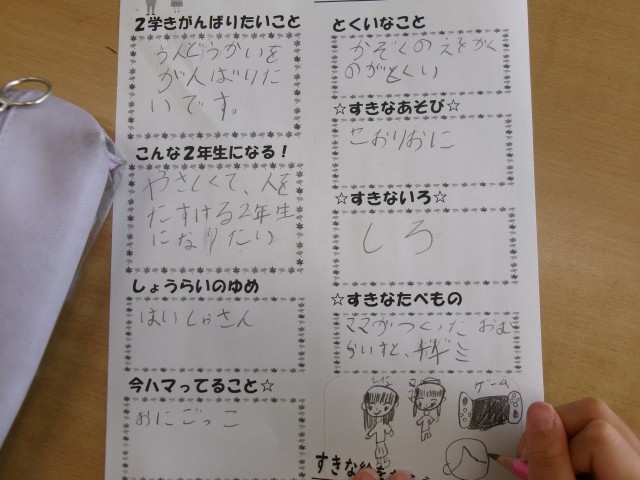 2学きがんばりたいこと
うんどうかいを
がんばりた
いです。
こんな2年生になる！
やさしくて、人を
たすける2年生
になりたい
しょうらいのゆめ
はいしゃさん
今ハマってること☆
おにごっこ
とくいなこと
かぞくのえをかく
のがとくい
☆すきなあそび☆
こおりおに
☆すきないろ☆
しろ
☆すきなたべもの
ママがつくった おむ
らいすと、
ゲーム
すきな